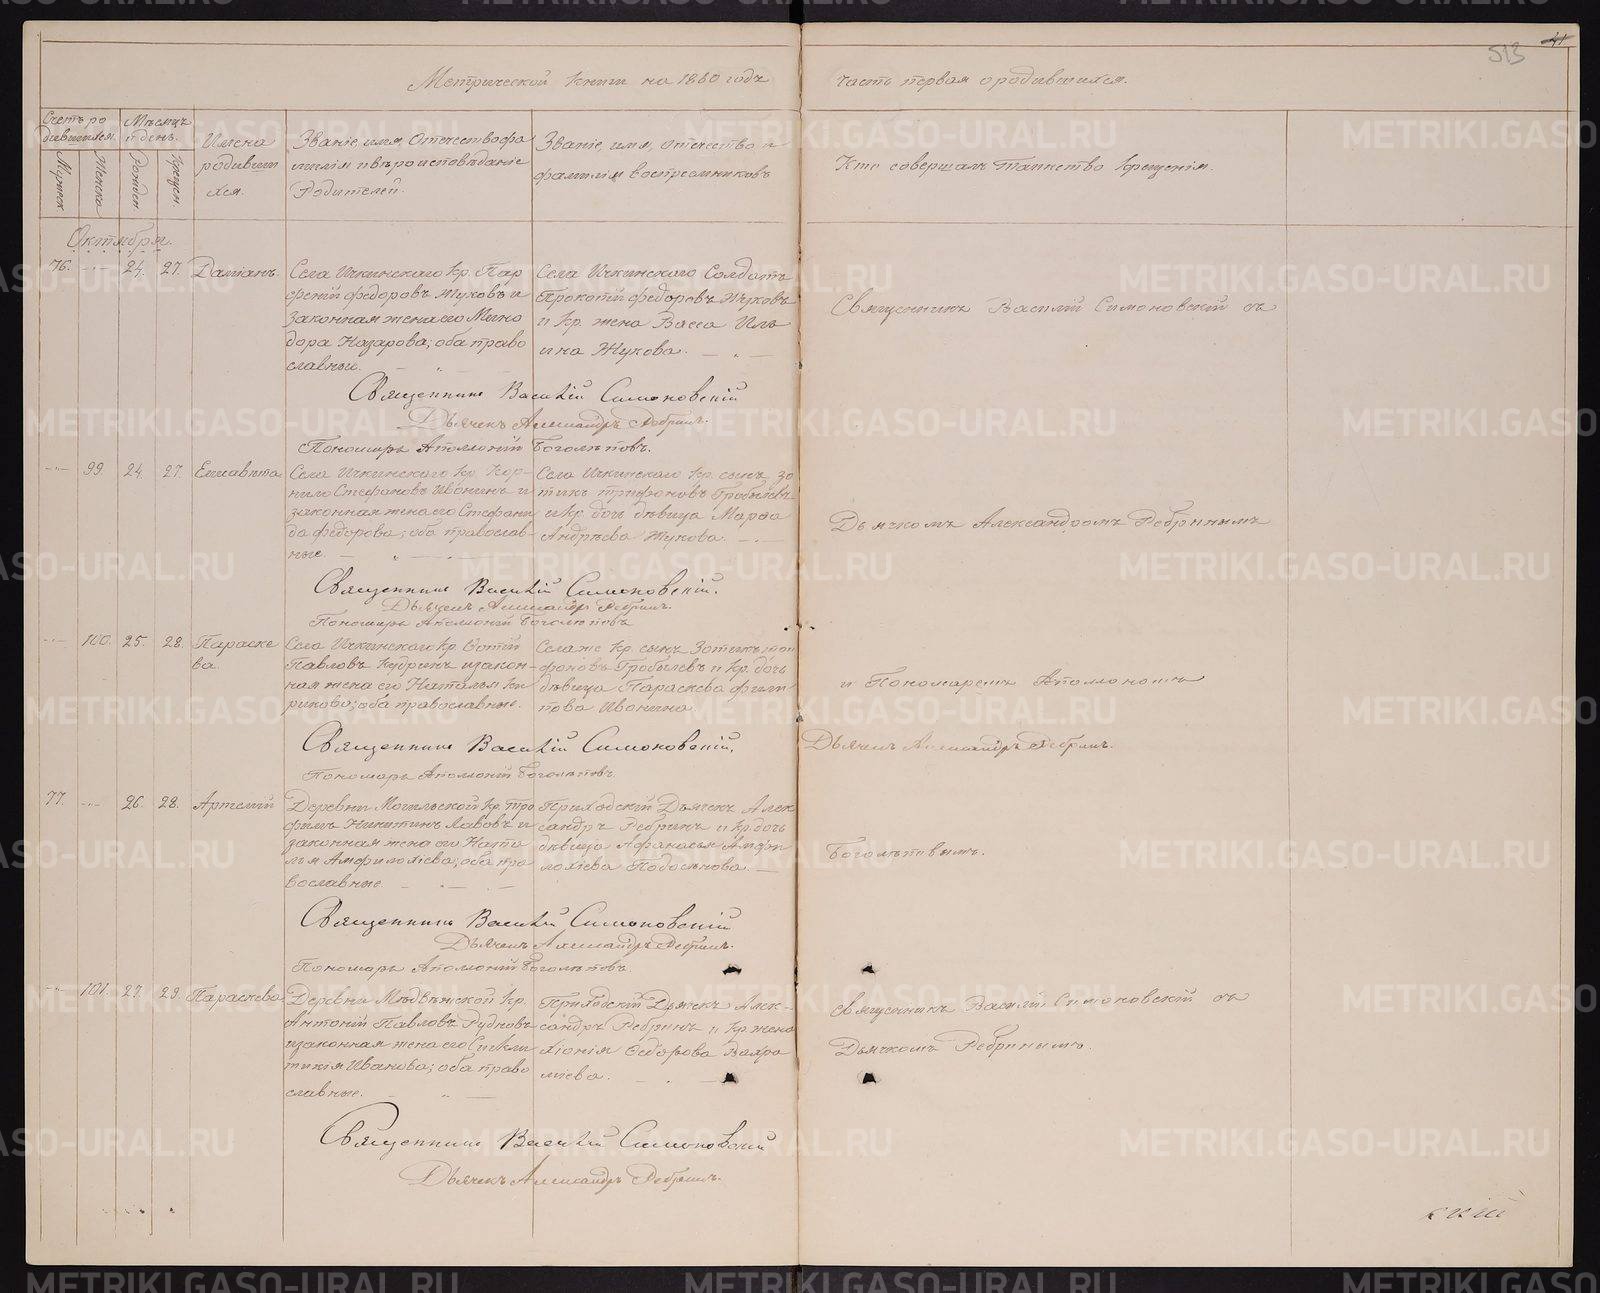 41
513
Метрической книги на 1860 годъ
часть первая о родившихся.
Счетъ ро
дившихся.
Мужск.
Женска
Мѣсяцъ
и день.
Рожден.
Крещен.
Имена
родивши
хся.
Званіе, имя, Отчество фа
милія и вѣроисповѣданіе
Родителей.
Званіе, имя, отчество и
фамилія воспреемниковъ
Кто совершалъ таинство крещенія.
Октября.
76. 24. 27. Даміанъ.
Села Ичкинскаго Кр. Пар
феній Федоровъ Жуковъ и
законная жена его Мино
дора Назарова; оба право
славные.
Села Ичкинскаго Солдатъ
Прокопій Федоровъ Жуковъ
и Кр. жена Васса Иль
ина Жукова.
Священникъ Василій Симоновскій съ
Священникъ Василій Симоновскій
Дьячекъ Александръ Ребринъ.
Пономарь Аполлоній Боголѣповъ.
99 24. 27. Елисавета
Села Ичкинскаго Кр. Кор-
нило Стефановъ Ивонинъ и
законная жена его Стефани
да Федорова; оба православ-
ные.
Села Ичкинскаго Кр. сынъ Зо
тикъ Трифоновъ Гробылевъ
и Кр. дочь дѣвица Марфа
Андрѣева Жукова.
Дьячкомъ Александромъ Ребринымъ
Священникъ Василій Симоновскій.
Дьячекъ Александръ Ребринъ.
Пономарь Аполлоній Боголѣповъ
100. 25. 28. Параске
ва.
Села Ичкинскаго Кр. Фотій
Павловъ Кудринъ и закон-
ная жена его Наталья Ки
рикова; оба православные.
Села же Кр. сынъ Зотикъ Три
фоновъ Гробылевъ и Кр. дочь
дѣвица Параскева Филип
пова Ивонина.
и Пономаремъ Аполлономъ
Священникъ Василій Симоновскій.
Дьячекъ Александръ Ребринъ.
Пономарь Аполлоній Боголѣповъ.
77. 26. 28. Артемій
Деревни Могильской Кр. Тро
фимъ Никитинъ Лавовъ и
законная жена его Ната
лья Амфилохіева; оба пра
вославные.
Приходскій Дьячекъ Алек
сандръ Ребринъ и Кр. дочь
дѣвица Афанасья Амфи
лохіева Подосѣнова.
Боголѣповымъ.
Священникъ Василій Симоновскій
Дьячекъ Александръ Ребринъ.
Пономарь Аполлоній Боголѣповъ.
101. 27. 29. Параскева
Деревни Медвѣжской Кр.
Антоній Павловъ Рудновъ
и законная жена его Синкли
тикія Иванова; оба право
славные.
Приходскій Дьячекъ Алек-
сандръ Ребринъ и Кр. жена
Хіонія Федорова Вахра
мѣева.
Священникъ Василій Симоновскій съ
Дьячкомъ Ребринымъ.
Священникъ Василій Симоновскій
Дьячекъ Александръ Ребринъ.